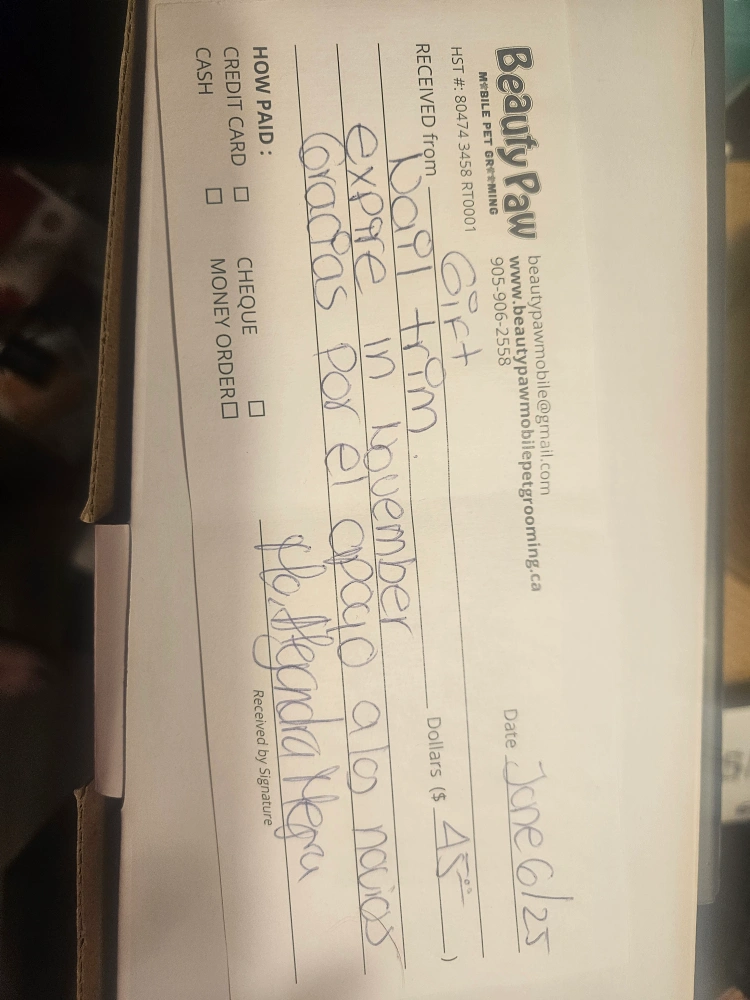 Beauty Paw
MOBILE PET GROOMING
beautypawmobile@gmail.com
www.beautypawmobilepetgrooming.ca
905-906-2558
HST #: 80474 3458 RT0001
Date June 6/25
Gift
RECEIVED from Dollars ($ 45.00 )
Nail trim.
expire in November
Gracias por el apoyo a los novios
Ma, Alejandra Negru
Received by Signature
HOW PAID :
CREDIT CARD ☐ CHEQUE ☐
CASH ☐ MONEY ORDER ☐